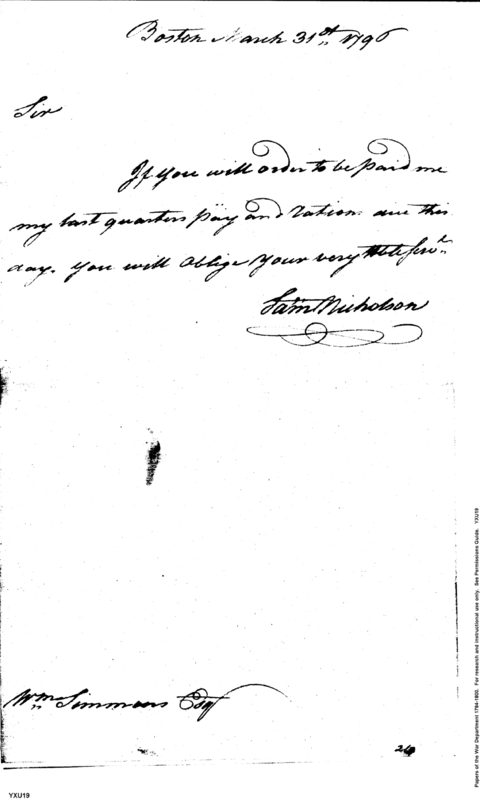 Boston March 31st 1796
Sir
If you will order to be paid me
my last quarters pay and rations due this
day. you will oblige your very Hble Servt
Sam Nicholson
Wm Simmons Esq
24
Papers of the War Department 1784-1800. For research and instructional use only. See Permissions Guide. YXU19
YXU19